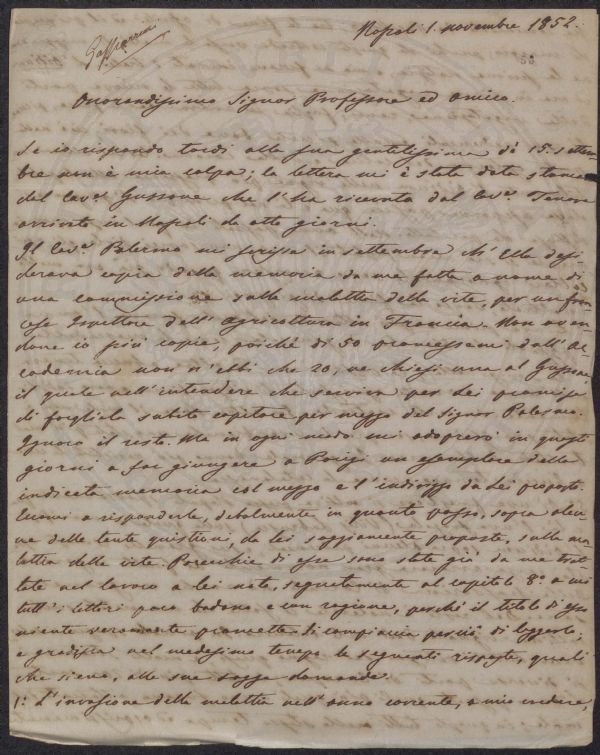 Napoli 1. novembre 1852.
Gasparrini
Onorandissimo Signor Professore ed amico.
Se io rispondo tardi alla sua gentilissima di 15. settem
bre non è mia colpa; la lettera mi è stata data stamane
dal Cavr. Gussone che l'ha ricevuta dal Cavr. Tenore
arrivato in Napoli da otto giorni.
Il Cavr. Palermo mi scrisse in settembre ch'Ella desi
derava copia della memoria da me fatta a nome di
una commissione sulla malattia della vite, per un fran-
cese Ispettore dell'agricoltura in Francia. Non aven
done io più copie, poichè di 50 promessemi dall'Ac
cademia non n'ebbi che 20, ne chiesi una al Gussone,
il quale nell'intendere che serviva per Lei promise
di fargliela subito capitare per mezzo del Signor Palermo.
Ignoro il resto. Ma in ogni modo mi adoprerò in questi
giorni a far giungere a Parigi un esemplare della
indicata memoria col mezzo e l'indirizzo da Lei proposto.
Eccomi a risponderle, debolmente in quanto posso, sopra alcu
ne delle tante quistioni, da lei saggiamente proposte, sulla ma
lattia della vite. Parecchie di esse sono state già da me trat
tate nel lavoro a lei noto, segnatamente al capitolo 8.° a cui
tutt'i lettori poco badano e con ragione, perchè il titolo di esso
niente veramente promette. Si compiaccia perciò di leggerlo;
e gradisca nel medesimo tempo le seguenti risposte, quali
che siano, alle sue sagge domande.
1.° L'invasione della malattia nell'anno corrente, a mio credere,